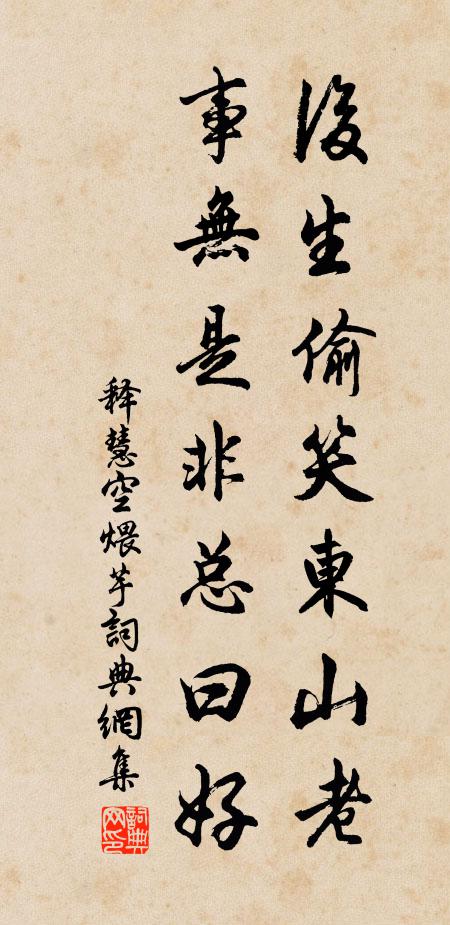 後生偷笑東山老
事無是非总曰好
释慧空煨芋詞典網集
詞典网印